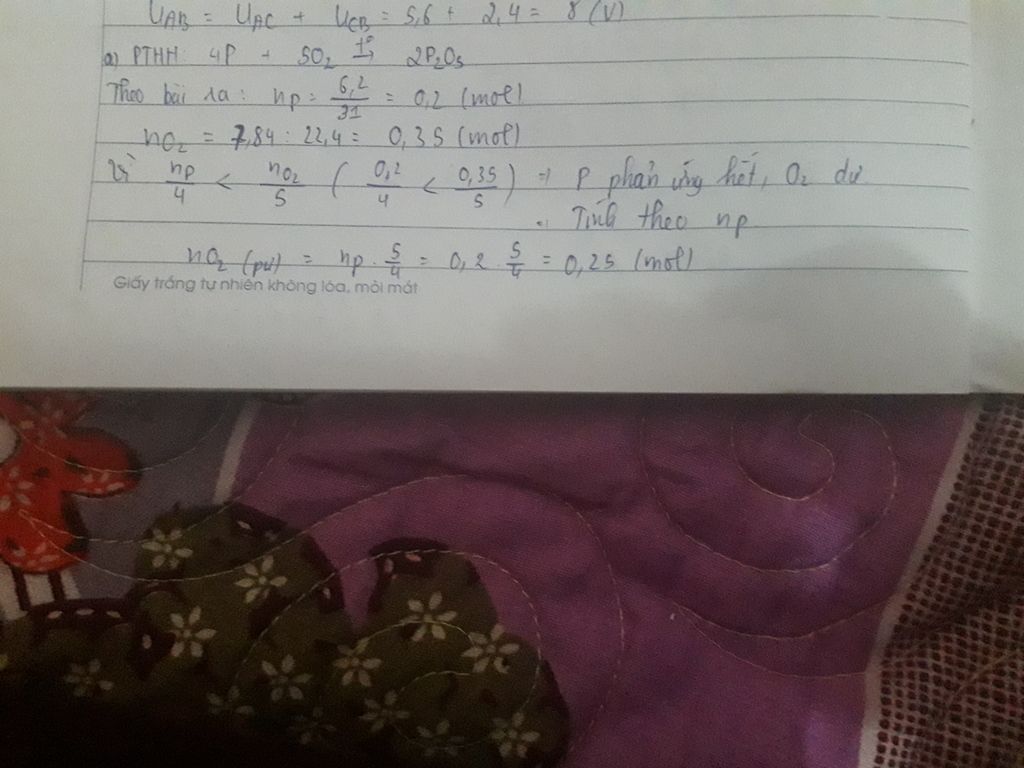 U_AB = U_AC + U_CB = 5,6 + 2,4 = 8 (V)
a) PTHH: 4P + 5O₂ t°→ 2P₂O₅
Theo bài ra: nP = 6,2/31 = 0,2 (mol)
nO₂ = 7,84 : 22,4 = 0,35 (mol)
Vì nP/4 < nO₂/5 ( 0,2/4 < 0,35/5 ) ⇒ P phản ứng hết, O₂ dư
⇒ Tính theo nP
nO₂ (pư) = nP . 5/4 = 0,2 . 5/4 = 0,25 (mol)
Giấy trắng tự nhiên không lóa, mỏi mắt